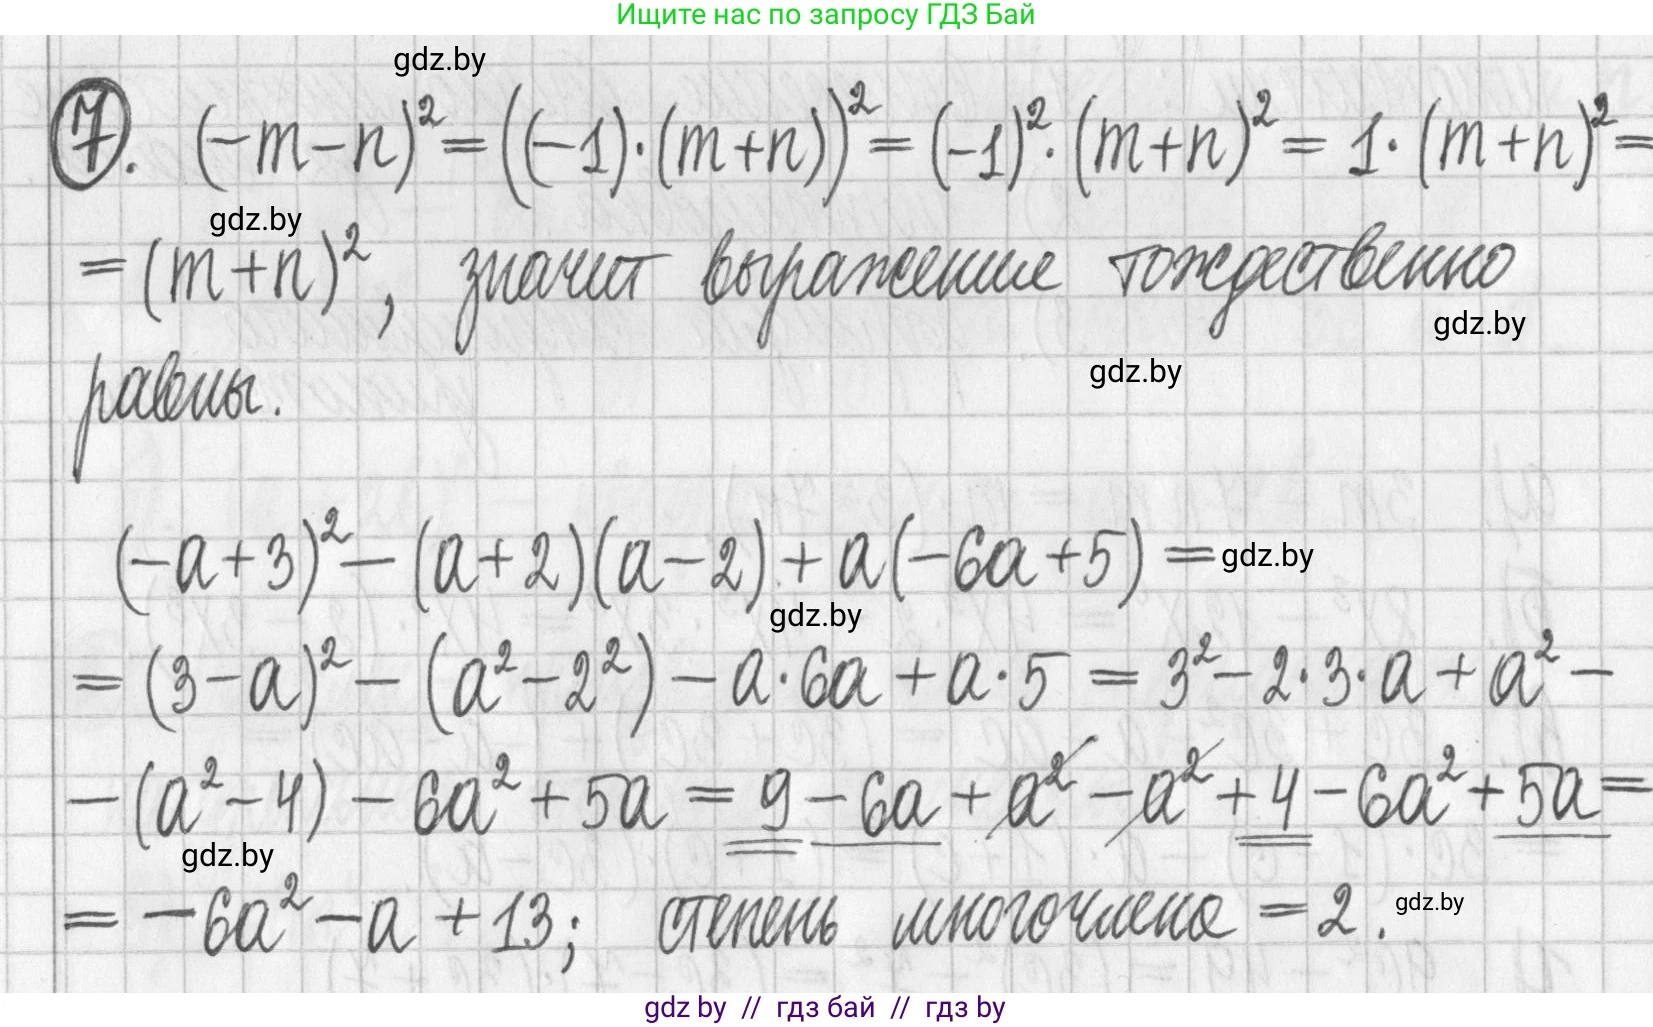 Ищите нас по запросу ГДЗ Бай
gdz.by
7. (-m-n)² = ((-1)·(m+n))² = (-1)²·(m+n)² = 1·(m+n)² =
gdz.by
= (m+n)², значит выражение тождественно
gdz.by
gdz.by
равны.
(-a+3)² - (a+2)(a-2) + a(-6a+5) = gdz.by
gdz.by
= (3-a)² - (a²-2²) - a·6a + a·5 = 3² - 2·3·a + a² -
- (a²-4) - 6a² + 5a = 9 - 6a + a² - a² + 4 - 6a² + 5a =
gdz.by
= -6a² - a + 13; степень многочлена = 2. gdz.by
gdz by // гдз бай // гдз by